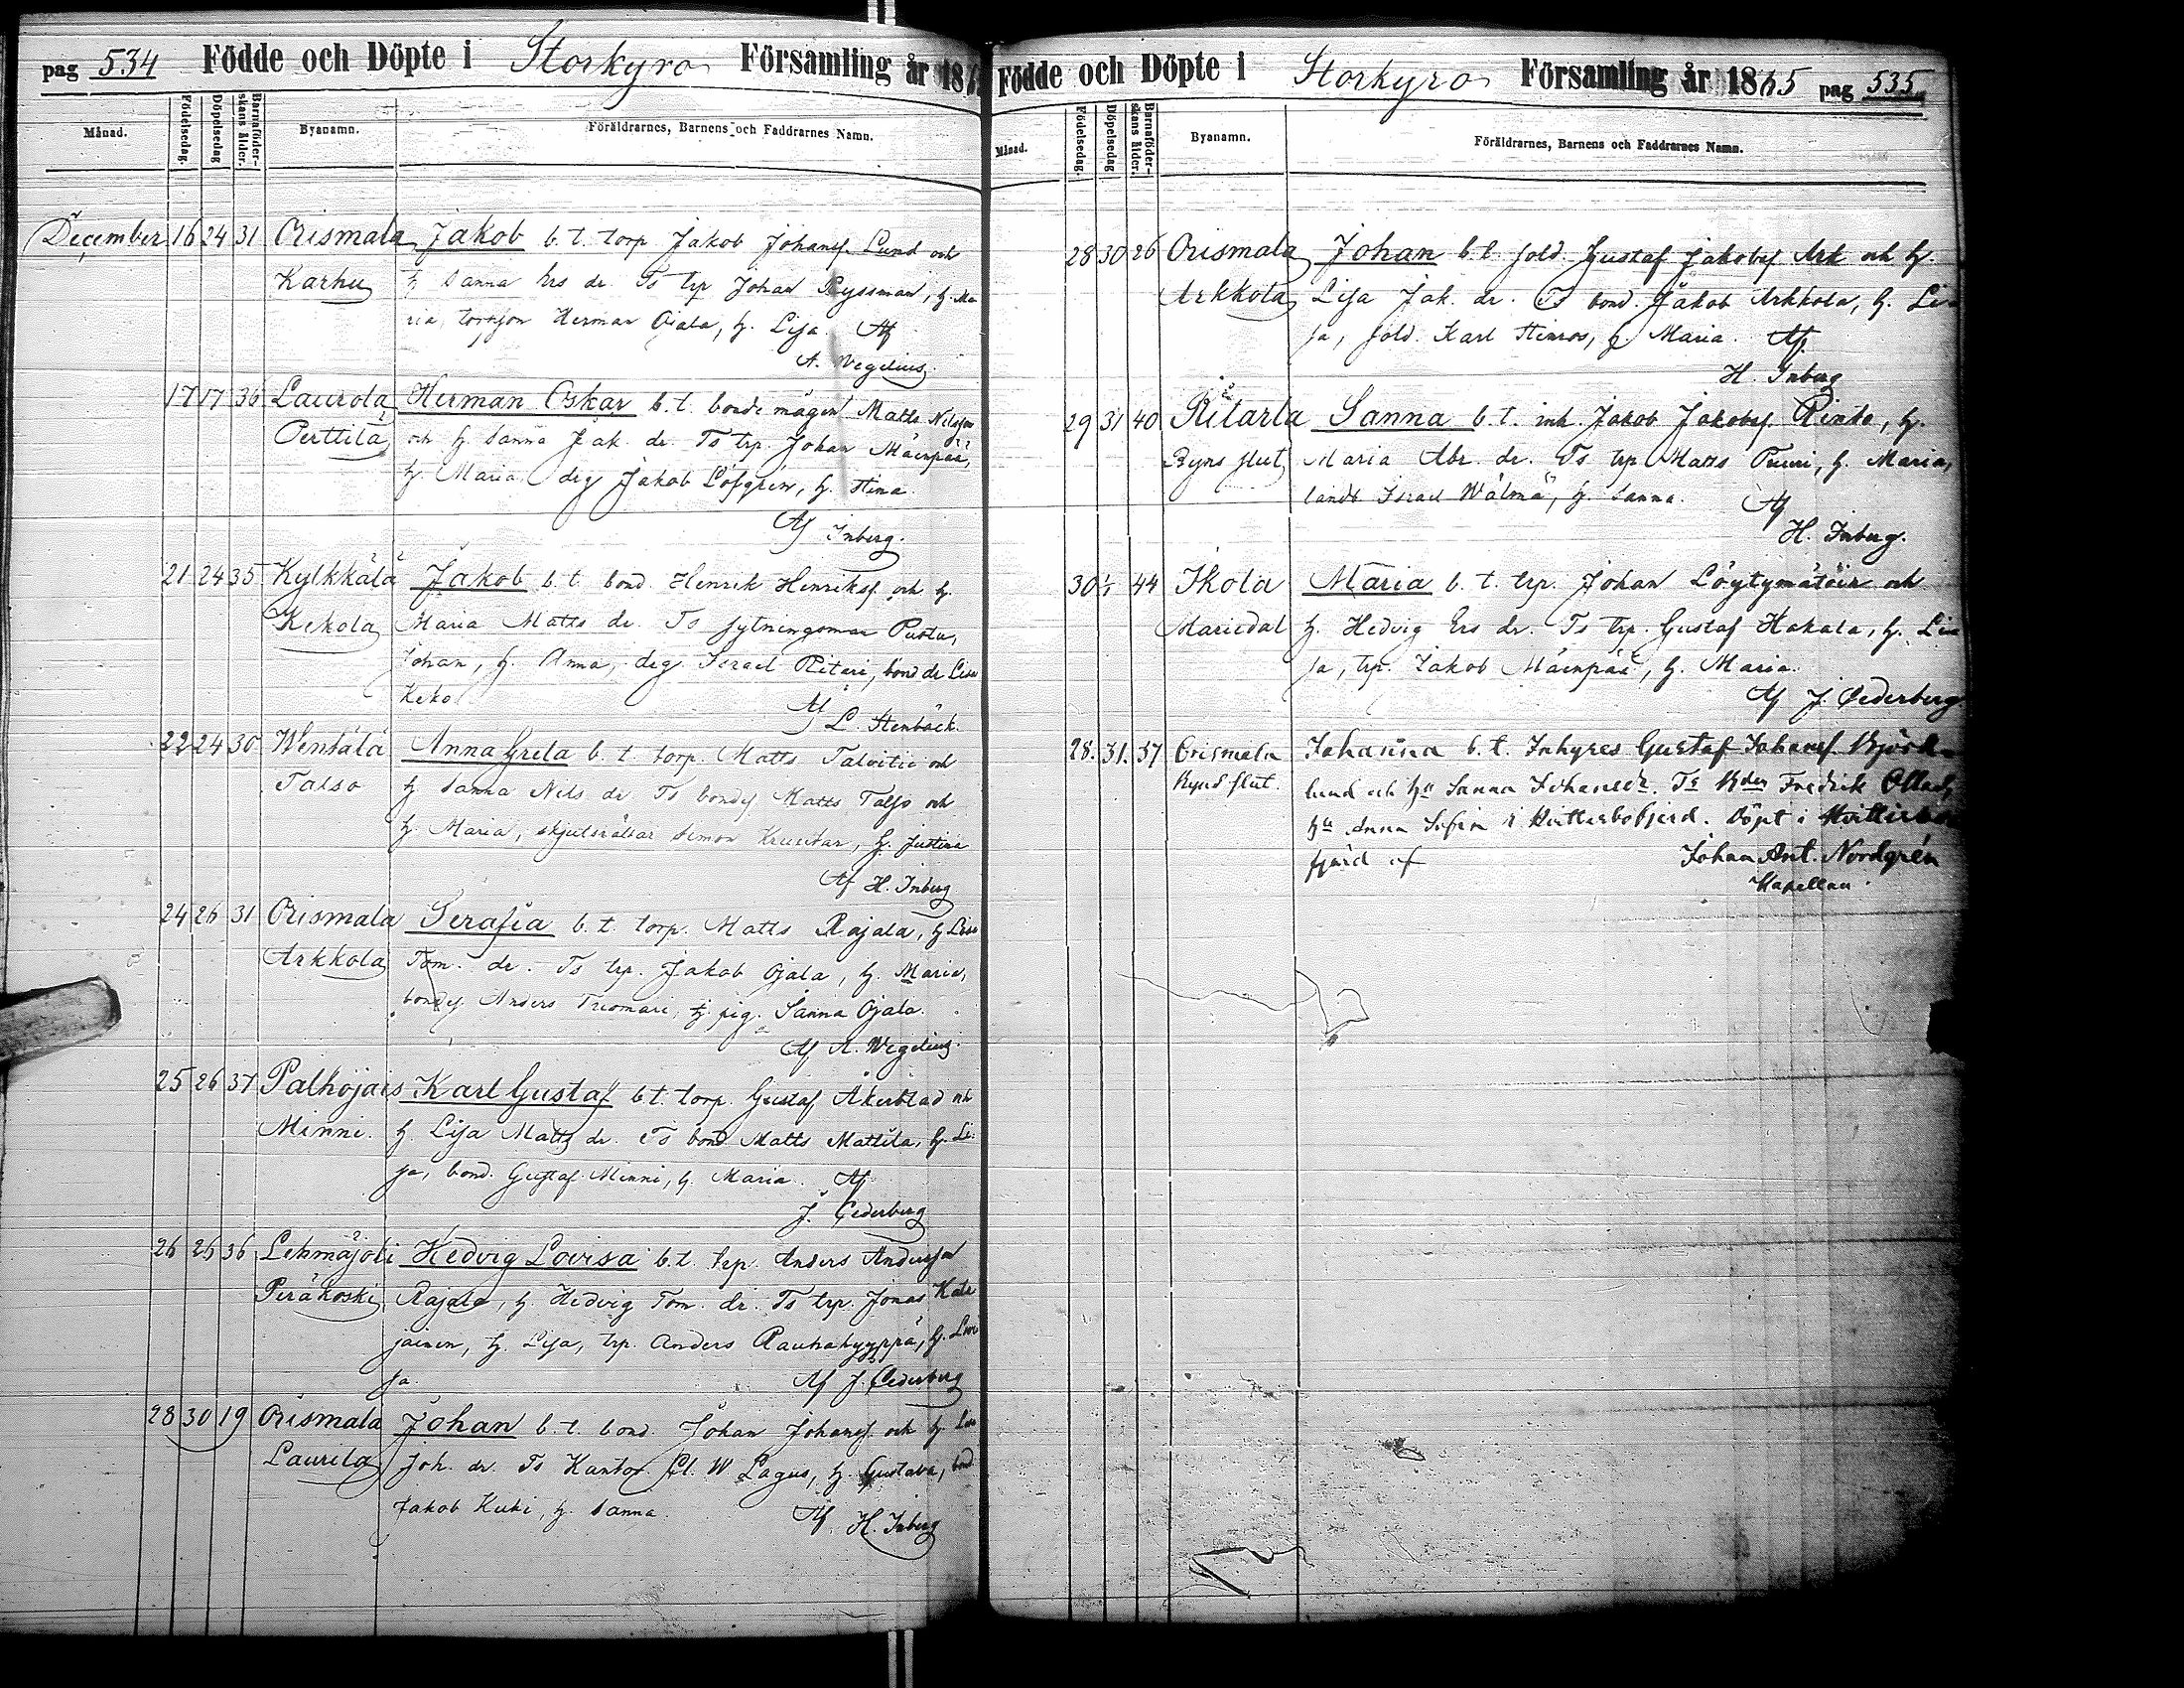 pag 534 Födde och Döpte i Storkyro Församling år 18
Månad. Födelsedag. Döpelsedag Barnaföder-skans ålder. Byanamn. Föräldrarnes, Barnens och Faddrarnes Namn.
December 16 24 31 Orismala Jakob b. t. torp Jakob Johansſ. Lund och
Karhu hſ Sanna Ers dr. Ts trp Johan Ryssman, h. Ma
ria, torpſon Herman Ojala, h. Liſa. Af
A. Wegelius.
17 17 36 Laurola Herman Oskar b. t. bonde mågen Matts Nilsſon
Perttilä och h. Sanna Jak. dr. Ts trp. Johan Mäenpää,
h. Maria, drg Jakob Löfgrén, h. Stina.
Af Inberg.
21 24 35 Kylkkälä Jakob b. t. bond. Henrik Henriksſ. och h.
Kekola Maria Matts dr. Ts ſytningsman
Johan, h. Anna, drg Israel Ritari, bond dr Lisa
Keko Af
L. Stenbäck.
22 24 30 Wentälä Anna Greta b. t. torp. Matts Talvitie och
Talso h. Sanna Nils dr Ts bondeſ Matts Talſo och
h. Maria, skjutsrättar Simon h. Justina
Af H. Inberg
24 26 31 Orismala Serafia b. t. torp. Matts Rajala, h Lisa
Arkkola Tom. dr. Ts trp. Jakob Ojala, h. Maria,
bondeſ Anders h. pig. Sanna Ojala.
Af A. Wegelius.
25 26 37 Palhojais Karl Gustaf b. t. torp. Gustaf Åkerblad och
Minni. h. Liſa Matts dr. Ts bond Matts Mattila, h. Li-
ſa, bond. Guſtaf Minni, h. Maria. Af
J. Cederberg
26 26 36 Lehmäjoki Hedvig Lovisa b. t. trp. Anders Andersſon
Peräkoski Rajala, h. Hedvig Tom. dr. Ts trp. Jonas Kata
jainen, h. Liſa, trp. Anders Rauhakyyppä, h. Lovi
ſa. Af J. Cederberg
28 30 19 Orismala Johan b. t. bond. Johan Johansſ. och h. Lisa
Laurila Joh. dr. Ts Kantor Cl. W Lagus, h. Gustava, bond
Jakob Kuki, h. Sanna. Af H. Inberg
Födde och Döpte i Storkyro Församling år 1865 pag 535
Månad. Födelsedag Döpelsedag Barnaföder-skans ålder. Byanamn. Föräldrarnes, Barnens och Faddrarnes Namn.
28 30 26 Orismala Johan b. t. ſold. Gustaf Jakobsſ Ark och h.
Arkkola Liſa Jak. dr. Ts bond. Jakob Arkkola, h. Li
ſa, ſold. Karl Stenros, h. Maria. Af
H. Inberg
29 31 40 Ritarla Sanna b. t. inh. Jakob Jakobsſ. Rinta, h.
Byns ſlut Maria Abr. dr. Ts trp Matts Puuri, h. Maria,
landb Israel Wälmä, h. Sanna. Af
H. Inberg.
30 1/1 44 Ikola Maria b. t. trp. Johan Löytymätöin och
Mariedal h. Hedvig Ers dr. Ts trp. Gustaf Hakala, h. Li
ſa, trp. Jakob Mäenpää, h. Maria.
Af J. Cederberg.
28. 31. 37 Orismala Johanna b. t. Inhyses Gustaf Johansſ. Björk-
Byns ſlut. lund och hu Sanna Johansdr. Ts Fredrik
hu Anna Sofia i Döpt i
fjärd af Johan Ant. Nordgrén
Kapellan.